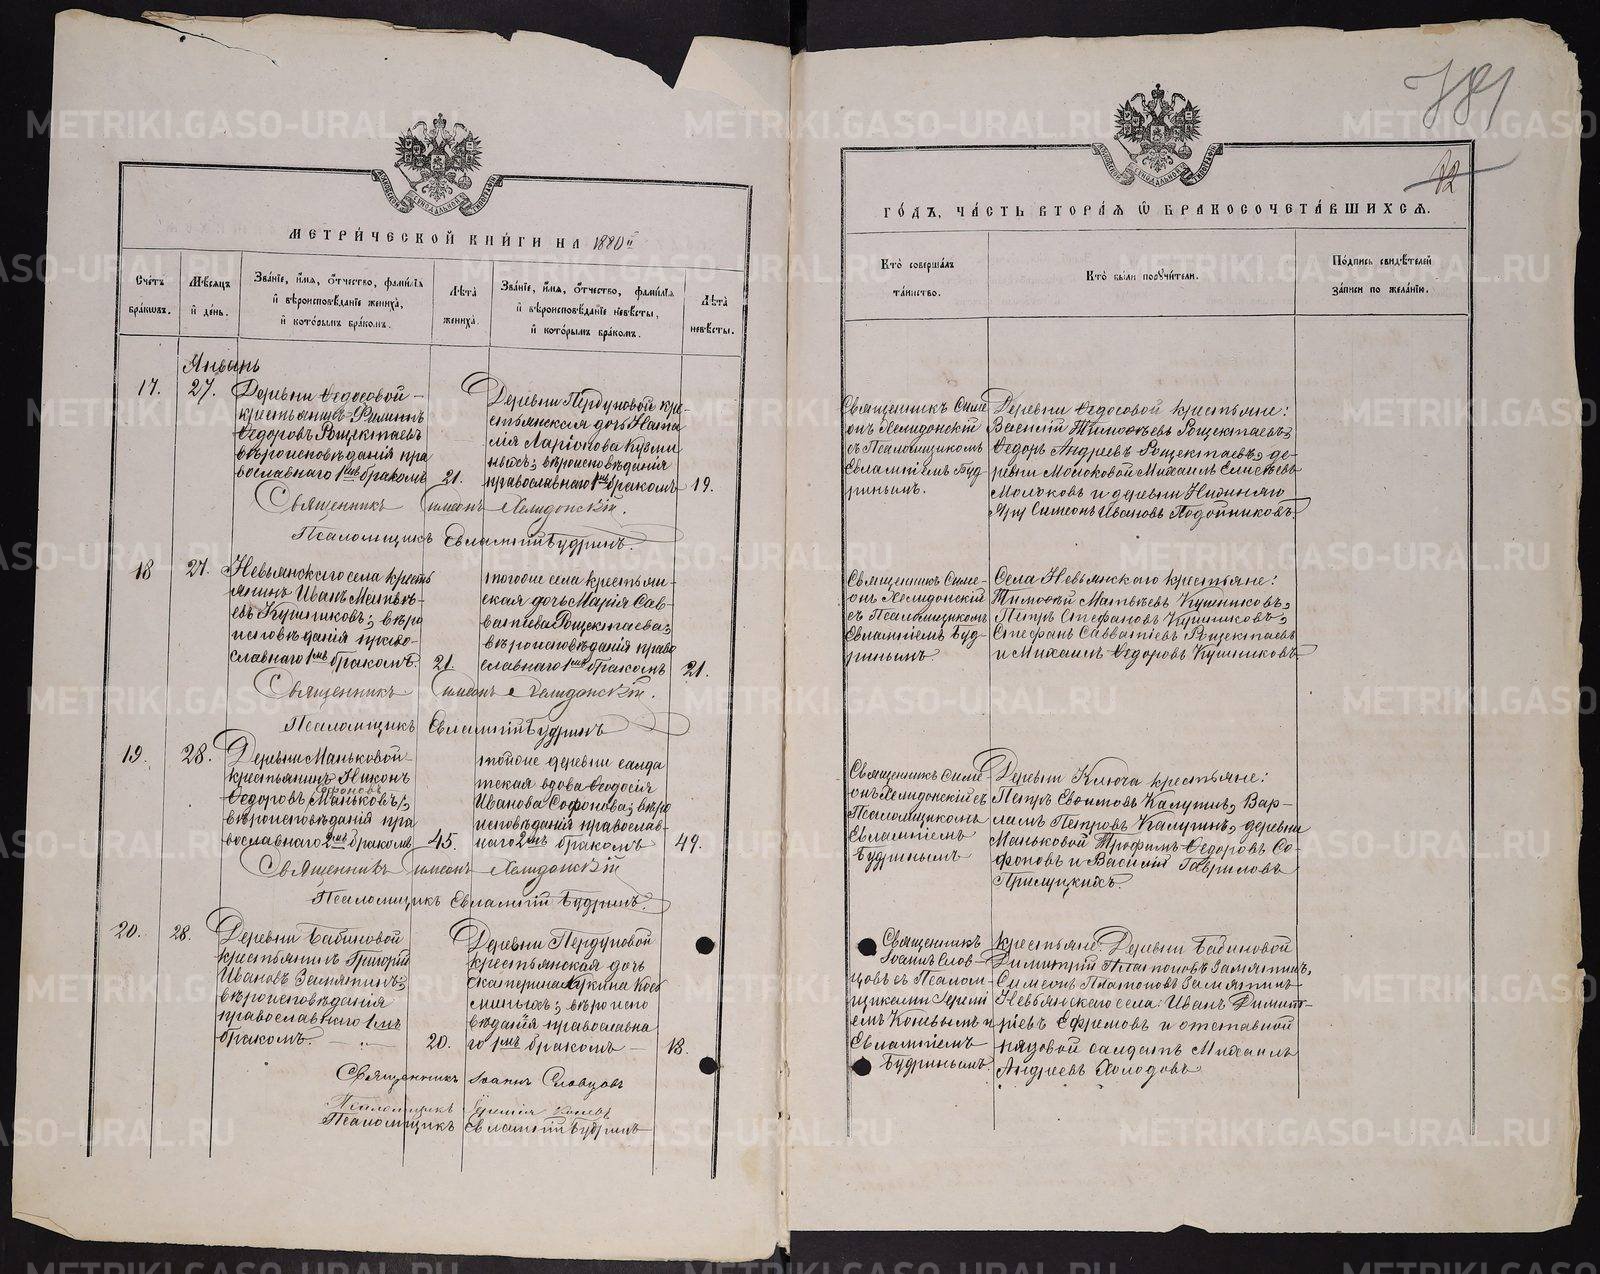 МЕТРИ́ЧЕСКОЙ КНИ́ГИ НА 1880й
Сче́тъ бра́кѡвъ.
Мѣ́сяцъ и҆ де́нь.
Зва́нїе, и҆́мя, ѻ҆́тчество, фами́лїя
и҆ вѣроисповѣ́данїе жениха̀,
и҆ кото́рымъ бра́комъ.
Лѣ́та жениха̀.
Зва́нїе, и҆́мя, ѻ҆́тчество, фами́лїя
и҆ вѣроисповѣ́данїе невѣ́сты,
и҆ кото́рымъ бра́комъ.
Лѣ́та невѣ́сты.
Январь
17.
27.
Деревни Ѳедосовой
крестьянинъ Филиппъ
Ѳедоровъ Рощектаевъ
вѣроисповѣданія пра
вославнаго 1мъ бракомъ
21.
Деревни Пердуновой кре-
стьянская дочь Ната
лія Ларіонова Кузми
ныхъ; вѣроисповѣданія
православнаго 1мъ бракомъ
19.
Священникъ Симеонъ Хелидонскій.
Псаломщикъ Евлампій Будринъ.
18
27.
Невьянскаго села кресть
янинъ Иванъ Матвѣ-
евъ Кушниковъ; вѣро
исповѣданія право-
славнаго 1мъ бракомъ.
21.
тогоже села крестьян-
ская дочь Марія Сав-
ватіева Рощектаева;
вѣроисповѣданія право
славнаго 1мъ бракомъ
21.
Священникъ Симеонъ Хелидонскій.
Псаломщикъ Евлампій Будринъ
19.
28.
Деревни Маньковой
крестьянинъ Никонъ
Софоновъ
Ѳедоровъ Маньковъ;
вѣроисповѣданія пра
вославнаго 2мъ бракомъ
45.
тойже деревни солда
тская вдова Ѳеодосія
Иванова Софонова; вѣро
исповѣданія православ-
наго 2мъ бракомъ
49.
Священникъ Симеонъ Хелидонскій
Псаломщикъ Евлампій Будринъ.
20.
28.
Деревни Бабиновой
крестьянинъ Григорій
Ивановъ Замятинъ;
вѣроисповѣданія
православнаго 1мъ
бракомъ.
20.
Деревни Пердуновой
крестьянская дочь
Екатерина Лукина Кось
миныхъ; вѣроиспо
вѣданія православна
го 1мъ бракомъ
18.
Священникъ Іоаннъ Словцовъ
Псаломщикъ Іеремія Коневъ
Псаломщикъ Евлампій Будринъ
781
12
ГО́ДЪ, ЧА́СТЬ ВТОРА́Я Ѡ҆ БРАКОСОЧЕТА́ВШИХСЯ.
Кто̀ соверша́лъ
та́инство.
Кто̀ бы́ли порꙋчи́тели.
По́дпись свидѣ́телей
за́писи по жела́нїю.
Священникъ Симе
онъ Хелидонскій
съ Псаломщикомъ
Евлампіемъ Буд-
ринымъ.
Деревни Ѳедосовой крестьяне:
Василій Тимоѳѣевъ Рощектаевъ,
Ѳедоръ Андреевъ Рощектаевъ, де-
ревни Молоковой Михаилъ Елисѣевъ
Молоковъ и деревни Нижняго
Яру Симеонъ Ивановъ Подойниковъ.
Священникъ Симе-
онъ Хелидонскій
съ Псаломщикомъ
Евлампіемъ Буд-
ринымъ.
Села Невьянскаго крестьяне:
Тимоѳей Матвѣевъ Кушниковъ,
Петръ Стефановъ Кушниковъ,
Стефанъ Савватіевъ Рощектаевъ
и Михаилъ Ѳедоровъ Кушниковъ
Священникъ Симе
онъ Хелидонскій съ
Псаломщикомъ
Евлампіемъ
Будринымъ
Деревни Ключа крестьяне:
Петръ Калугинъ, Вар-
лаамъ Петровъ Калугинъ, деревни
Маньковой Трофимъ Ѳедоровъ Со-
фоновъ и Василій Гавриловъ
Прилуцкихъ.
Священникъ
Іоаннъ Слов-
цовъ съ Псалом-
щиками Іеремі
емъ Коневымъ и
Евлампіемъ
Будринымъ.
крестьяне: Деревни Бабиновой
Димитрій Платоновъ Замятинъ,
Симеонъ Платоновъ Замятинъ
Невьянскаго села: Иванъ Димит-
ріевъ Ефремовъ и отставной
рядовой солдатъ Михаилъ
Андреевъ Холодовъ